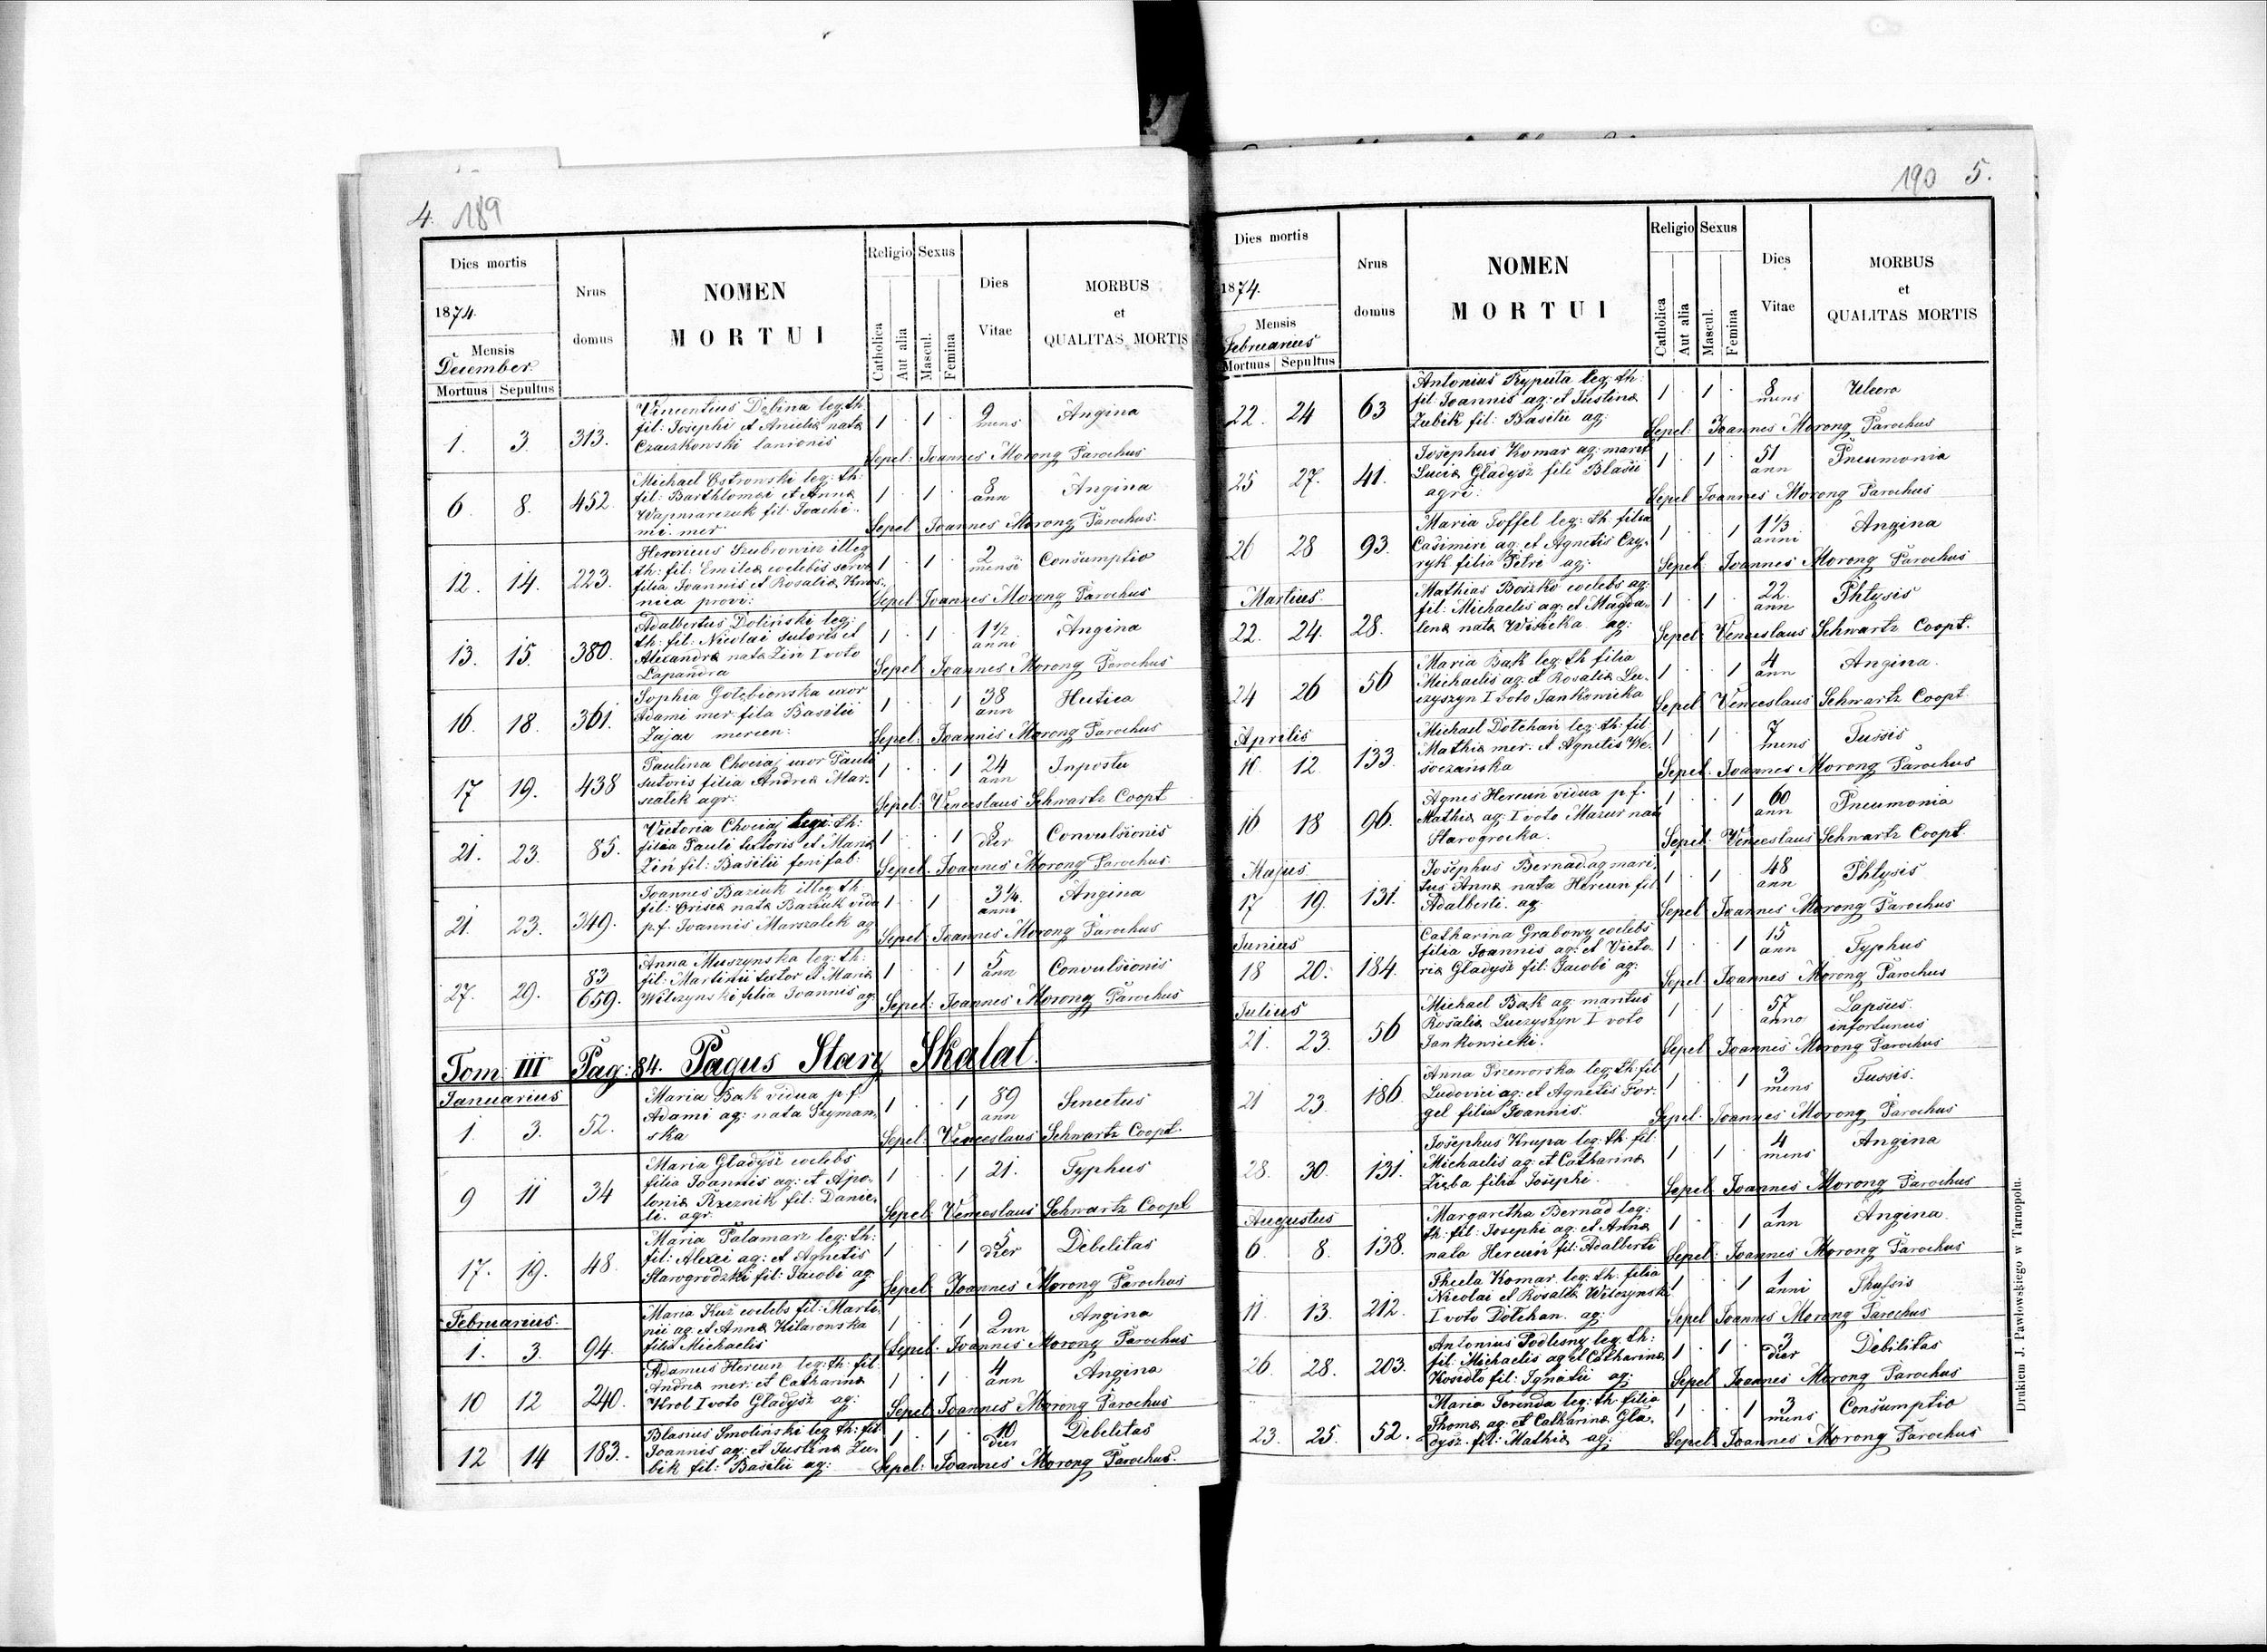 4. 189
Dies mortis
1874.
Mensis
December
Mortuus Sepultus
Nrus
domus
NOMEN
MORTUI
Religio
Catholica
Aut alia
Sexus
Mascul.
Femina
Dies
Vitae
MORBUS
et
QUALITAS MORTIS
1. 3. 313. Vincentius Dębina leg: th: 1 . 1 . 9 mens Angina
fil: Josephi et Anielæ natæ
Czaczkowski lanionis
Sepel: Joannes Morong Parochus
6. 8. 452. Michael Ostrowski leg: th: 1 . 1 . 8 ann Angina
fil: Barthlomei et Annæ
fil: Joachi-
mi. mer.
Sepel Joannes Morong Parochus.
12. 14. 223. Henricus Szubrowicz illeg 1 . 1 . 2 mensi Consumptio
th: fil: Emilæ coelebis
filia Joannis et Rosaliæ
nica provi:
Sepel Joannes Morong Parochus
13. 15. 380. Adalbertus Doliński leg: 1 . 1 . 1 1/2 anni Angina
th: fil: Nicolai sutoris et
Alexandræ natæ Zin I voto
Łapandra
Sepel Joannes Morong Parochus
16. 18. 361. Sophia Gołębionska uxor 1 . . 1 38 ann Hectica
Adami mer. fila Basilii
Zajac mercen:
Sepel: Joannis Morong Parochus
17 19. 438 Paulina Chociaj uxor Pauli 1 . . 1 24 ann
sutoris filia Andreæ Mar-
szalek agr:
Sepel: Venceslaus Schwartz Coopt
21. 23. 85. Victoria Chociaj leg: th: 1 . . 1 8 dier Convulsionis
filia Pauli textoris et Mariæ
Zin fil: Basilii feni fab:
Sepel: Joannes Morong Parochus
21. 23. 349. Joannes Baziuk illeg th 1 . 1 . 3 1/4. anni Angina
fil: natæ Baziuk vidu
p. f. Joannis Marszalek ag
Sepel: Joannes Morong Parochus
27. 29. 83 659. Anna Muszynska leg: th: 1 . . 1 5 ann Convulsionis
fil: Martinii textor et Mariæ
Wilczynski filia Joannis ag:
Sepel: Joannes Morong Parochus
Tom III Pag: 84. Pagus Stary Skalat.
Januarius
1. 3. 52. Maria Bąk vidua p. f. 1 . . 1 89 ann Senectus
Adami ag: nata Szyman-
ska
Sepel: Venceslaus Schwartz Coopt.
9 11 34 Maria Gladysz coelebs 1 . . 1 21. Typhus
filia Joannis ag: et Apo-
loniæ Rzeznik fil: Danie-
li. agr.
Sepel: Venceslaus Schwartz Coopt
17. 19. 48. Maria Palamarz leg: th: 1 . . 1 5 dier Debelitas
fil: Alexei ag: et Agnetis
Starogrodzki fil: Jacobi ag.
Sepel: Joannes Morong Parochus
Februarius.
1. 3. 94. Maria Kuź coelebs fil: Marti- 1 . . 1 9 ann Angina
nii ag: et Annæ Hilaronska
filiæ Michaelis
Sepel: Joannes Morong Parochus
10 12 240. Adamus Hercun leg: th: fil: 1 . 1 . 4 ann Angina
Andreæ mer: et Catharinæ
Krol I voto Gladysz ag:
Sepel Joannes Morong Parochus
12 14 183. Blasius Smolinski leg th: fil: 1 . 1 . 10 dier Debelitas
Joannis ag: et Justinæ Zu-
bik fil: Basilii ag:
Sepel: Joannes Morong Parochus.
190 5.
Dies mortis
1874.
Mensis
Februarius
Mortuus Sepultus
Nrus
domus
NOMEN
MORTUI
Religio
Catholica
Aut alia
Sexus
Mascul.
Femina
Dies
Vitae
MORBUS
et
QUALITAS MORTIS
22. 24 63 Antonius Ryputa leg: th: 1 . 1 . 8 mens Ulcera
fil: Joannis ag: et Justinæ
Zubik fil: Basilii ag:
Sepel: Joannes Morong Parochus
25 27. 41. Josephus Komar ag: marit 1 . 1 51 ann Pneumonia
Luciæ Gladysz fili Blasii
agri:
Sepel Joannes Morong Parochus
26 28 93. Maria Toffel leg: th: filia 1 . . 1 1 1/3. anni Angina
Casimiri ag: et Agnetis Czy-
ryk filia Petri ag:
Sepel: Joannes Morong Parochus
Martius.
22. 24. 28. Mathias Boszko coelebs ag: 1 . 1 . 22. ann Phtysis
fil: Michaelis ag: et Magda-
lenæ natæ ag:
Sepel: Venceslaus Schwartz Coopt.
24 26 56 Maria Bąk leg: th filia 1 . . 1 4 ann Angina.
Michaelis ag: et Rosaliæ Lu-
czyszyn I voto Jankowicka
Sepel Venceslaus Schwartz Coopt.
Aprilis
10. 12. 133. Michael Dołchan leg: th: fil: 1 . 1 . 7 mens Tussis
Mathiæ mer. et Agnetis We-
soczańska
Sepel: Joannes Morong Parochus
16 18 96. Agnes Hercuń vidua p. f. 1 . . 1 60 ann Pneumonia
Mathiæ ag: I voto Mazur nata
Starogrocka.
Sepel: Venceslaus Schwartz Coopt.
Majus
17 19. 131. Josephus Bernad ag. mari- 1 . 1 . 48 ann Phtysis
tus Annæ nata Hercun fil
Adalberti. ag.
Sepel Joannes Morong Parochus
Junius
18 20. 184. Catharina Grabowy coelebs 1 . . 1 15 ann Typhus
filia Joannis ag: et Victo-
riæ Gladysz fil: Jacobi ag:
Sepel Joannes Morong Parochus
Julius
21. 23. 56 Michael Bąk ag: maritus 1 . 1 . 57 anno Lapsus.
Rosaliæ Luczyszyn I voto infortunus
Jankowicki.
Sepel Joannes Morong Parochus
21 23. 186. Anna Przeworska leg: th: fil 1 . . 1 3 mens Tussis.
Ludovici ag: et Agnetis For-
gel filiæ Joannis.
Sepel: Joannes Morong Parochus
28. 30. 131. Josephus Krupa leg: th: fil: 1 . 1 . 4 mens Angina
Michaelis ag: et Catharinæ
Zięba filia Josephi.
Sepel: Joannes Morong Parochus
Augustus
6. 8. 138. Margaretha Bernad leg: 1 . . 1 1 ann Angina.
th: fil: Josephi ag: et Annæ
nata Hercuń fil: Adalberti
Sepel: Joannes Morong Parochus
11. 13. 212. Thecla Komar leg: th: filia 1 . . 1 1 anni
Nicolai et Rosaliæ Wilczynski
I voto Dołchan. ag:
Sepel Joannes Morong Parochus
26. 28. 203. Antonius Podlesny leg: th: 1 . 1 . 3 dier Debilitas
fil: Michaelis ag et Catharinæ
Kosidło fil: Ignatii ag:
Sepel Joannes Morong Parochus
23. 25. 52. Maria Forenda leg: th: filia 1 . . 1 3 mens Consumptio
Thomæ ag: et Catharinæ Gla-
dysz. fil: Mathiæ ag:
Sepel Joannes Morong Parochus
Drukiem J. Pawłowskiego w Tarnopolu.